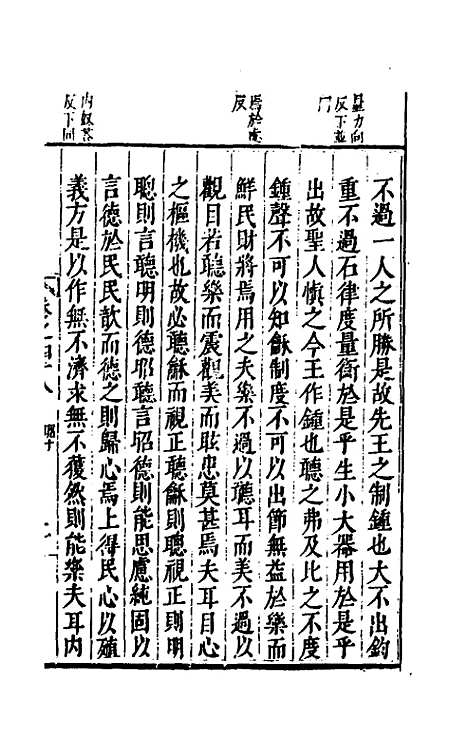 量力向
反下並
同
焉於虔
反
內奴荅
反下同
不過一人之所勝是故先王之制鍾也大不出鈞
重不過石律度量衡於是乎生小大器用於是乎
出故聖人慎之今王作鍾也聽之弗及比之不度
鍾聲不可以知龢制度不可以出節無益於樂而
鮮民財將焉用之夫樂不過以聽耳而美不過以
觀目若聽樂而震觀美而眩患莫甚焉夫耳目心
之樞機也故必聽龢而視正聽龢則聰視正則明
聰則言聽明則德昭聽言昭德則能思慮純固以
言德於民民歆而德之則歸心焉上得民心以殖
義方是以作無不濟求無不獲然則能樂夫耳內
卷之四十八
昭十